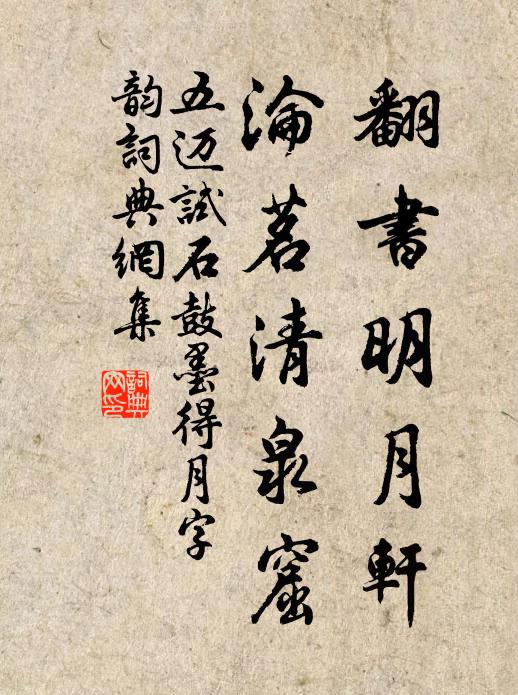 翻書明月軒
淪茗清泉窟
五迈試石鼓墨得月字
韵詞典網集
詞典
网印